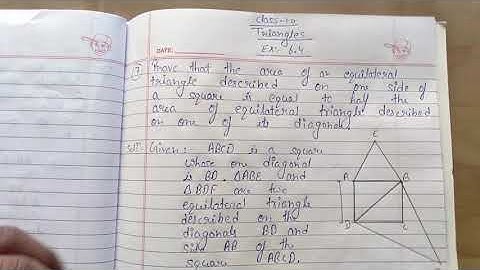 class-10
Triangles
DATE: Ex: 6.4
7 Prove that the area of an equilateral
triangle described on one side of
a square is equal to half the
area of equilateral triangle described
on one of its diagonals.
Soln- Given: ABCD is a square
whose one diagonal
is BD, ΔABE and
ΔBDF are two
equilateral triangle
described on the
diagonals BD and
side AB of the
square ABCD.
E
A B
D C